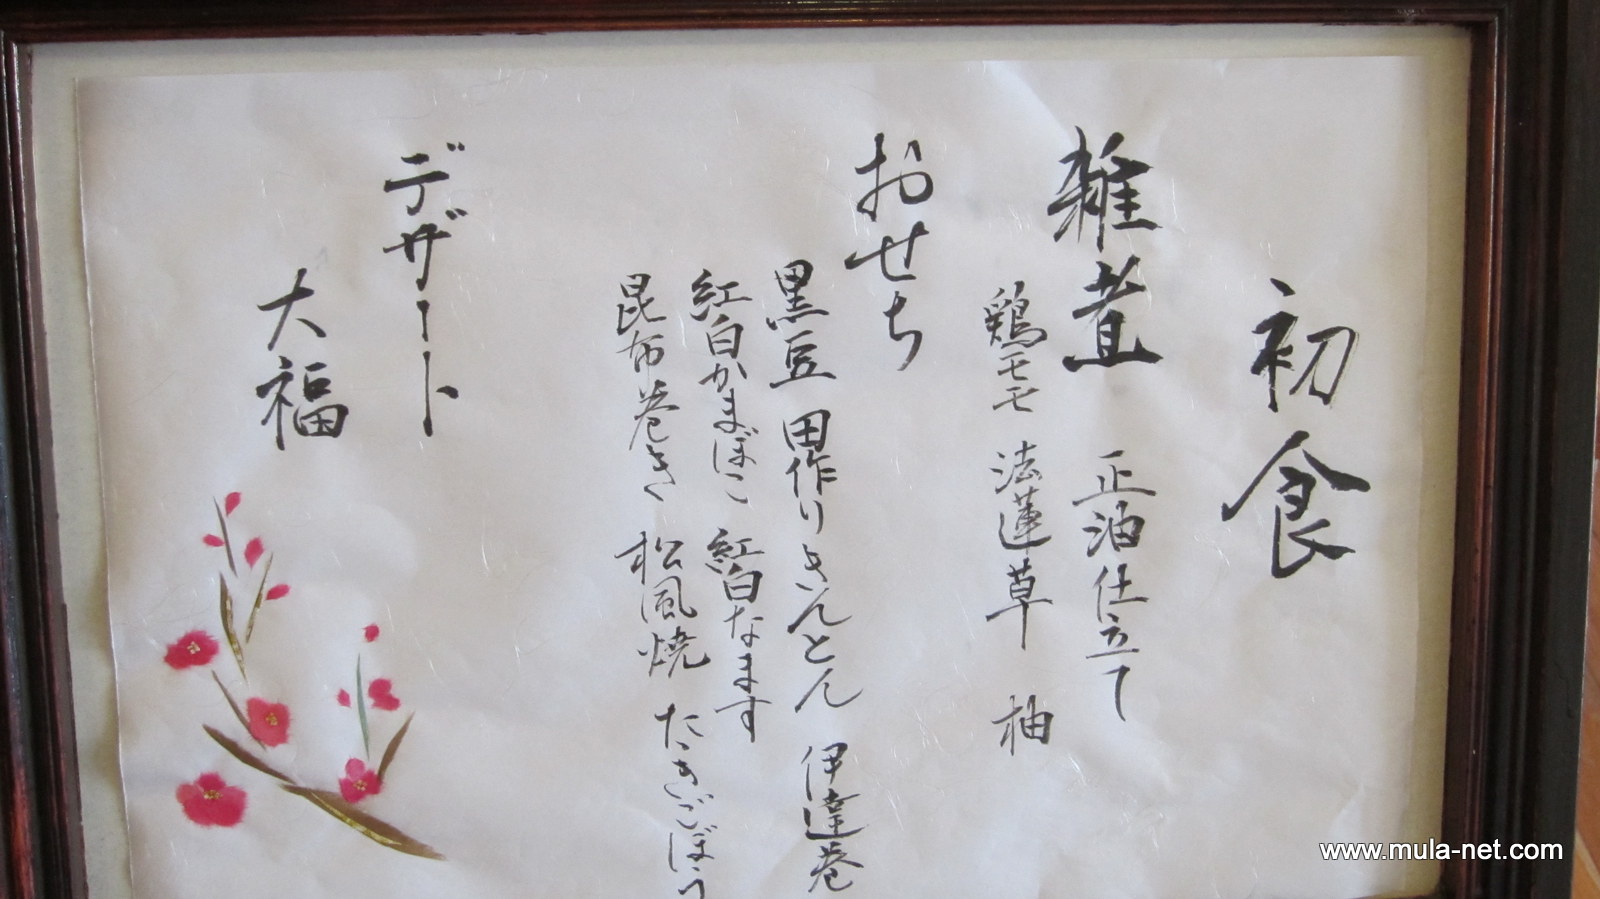 初食
雑煮 正油仕立て
鶏モモ 法蓮草 柚
おせち
黒豆 田作り きんとん 伊達巻
紅白かまぼこ 紅白なます
昆布巻き 松風焼 たたきごぼう
デザート
大福
www.mula-net.com